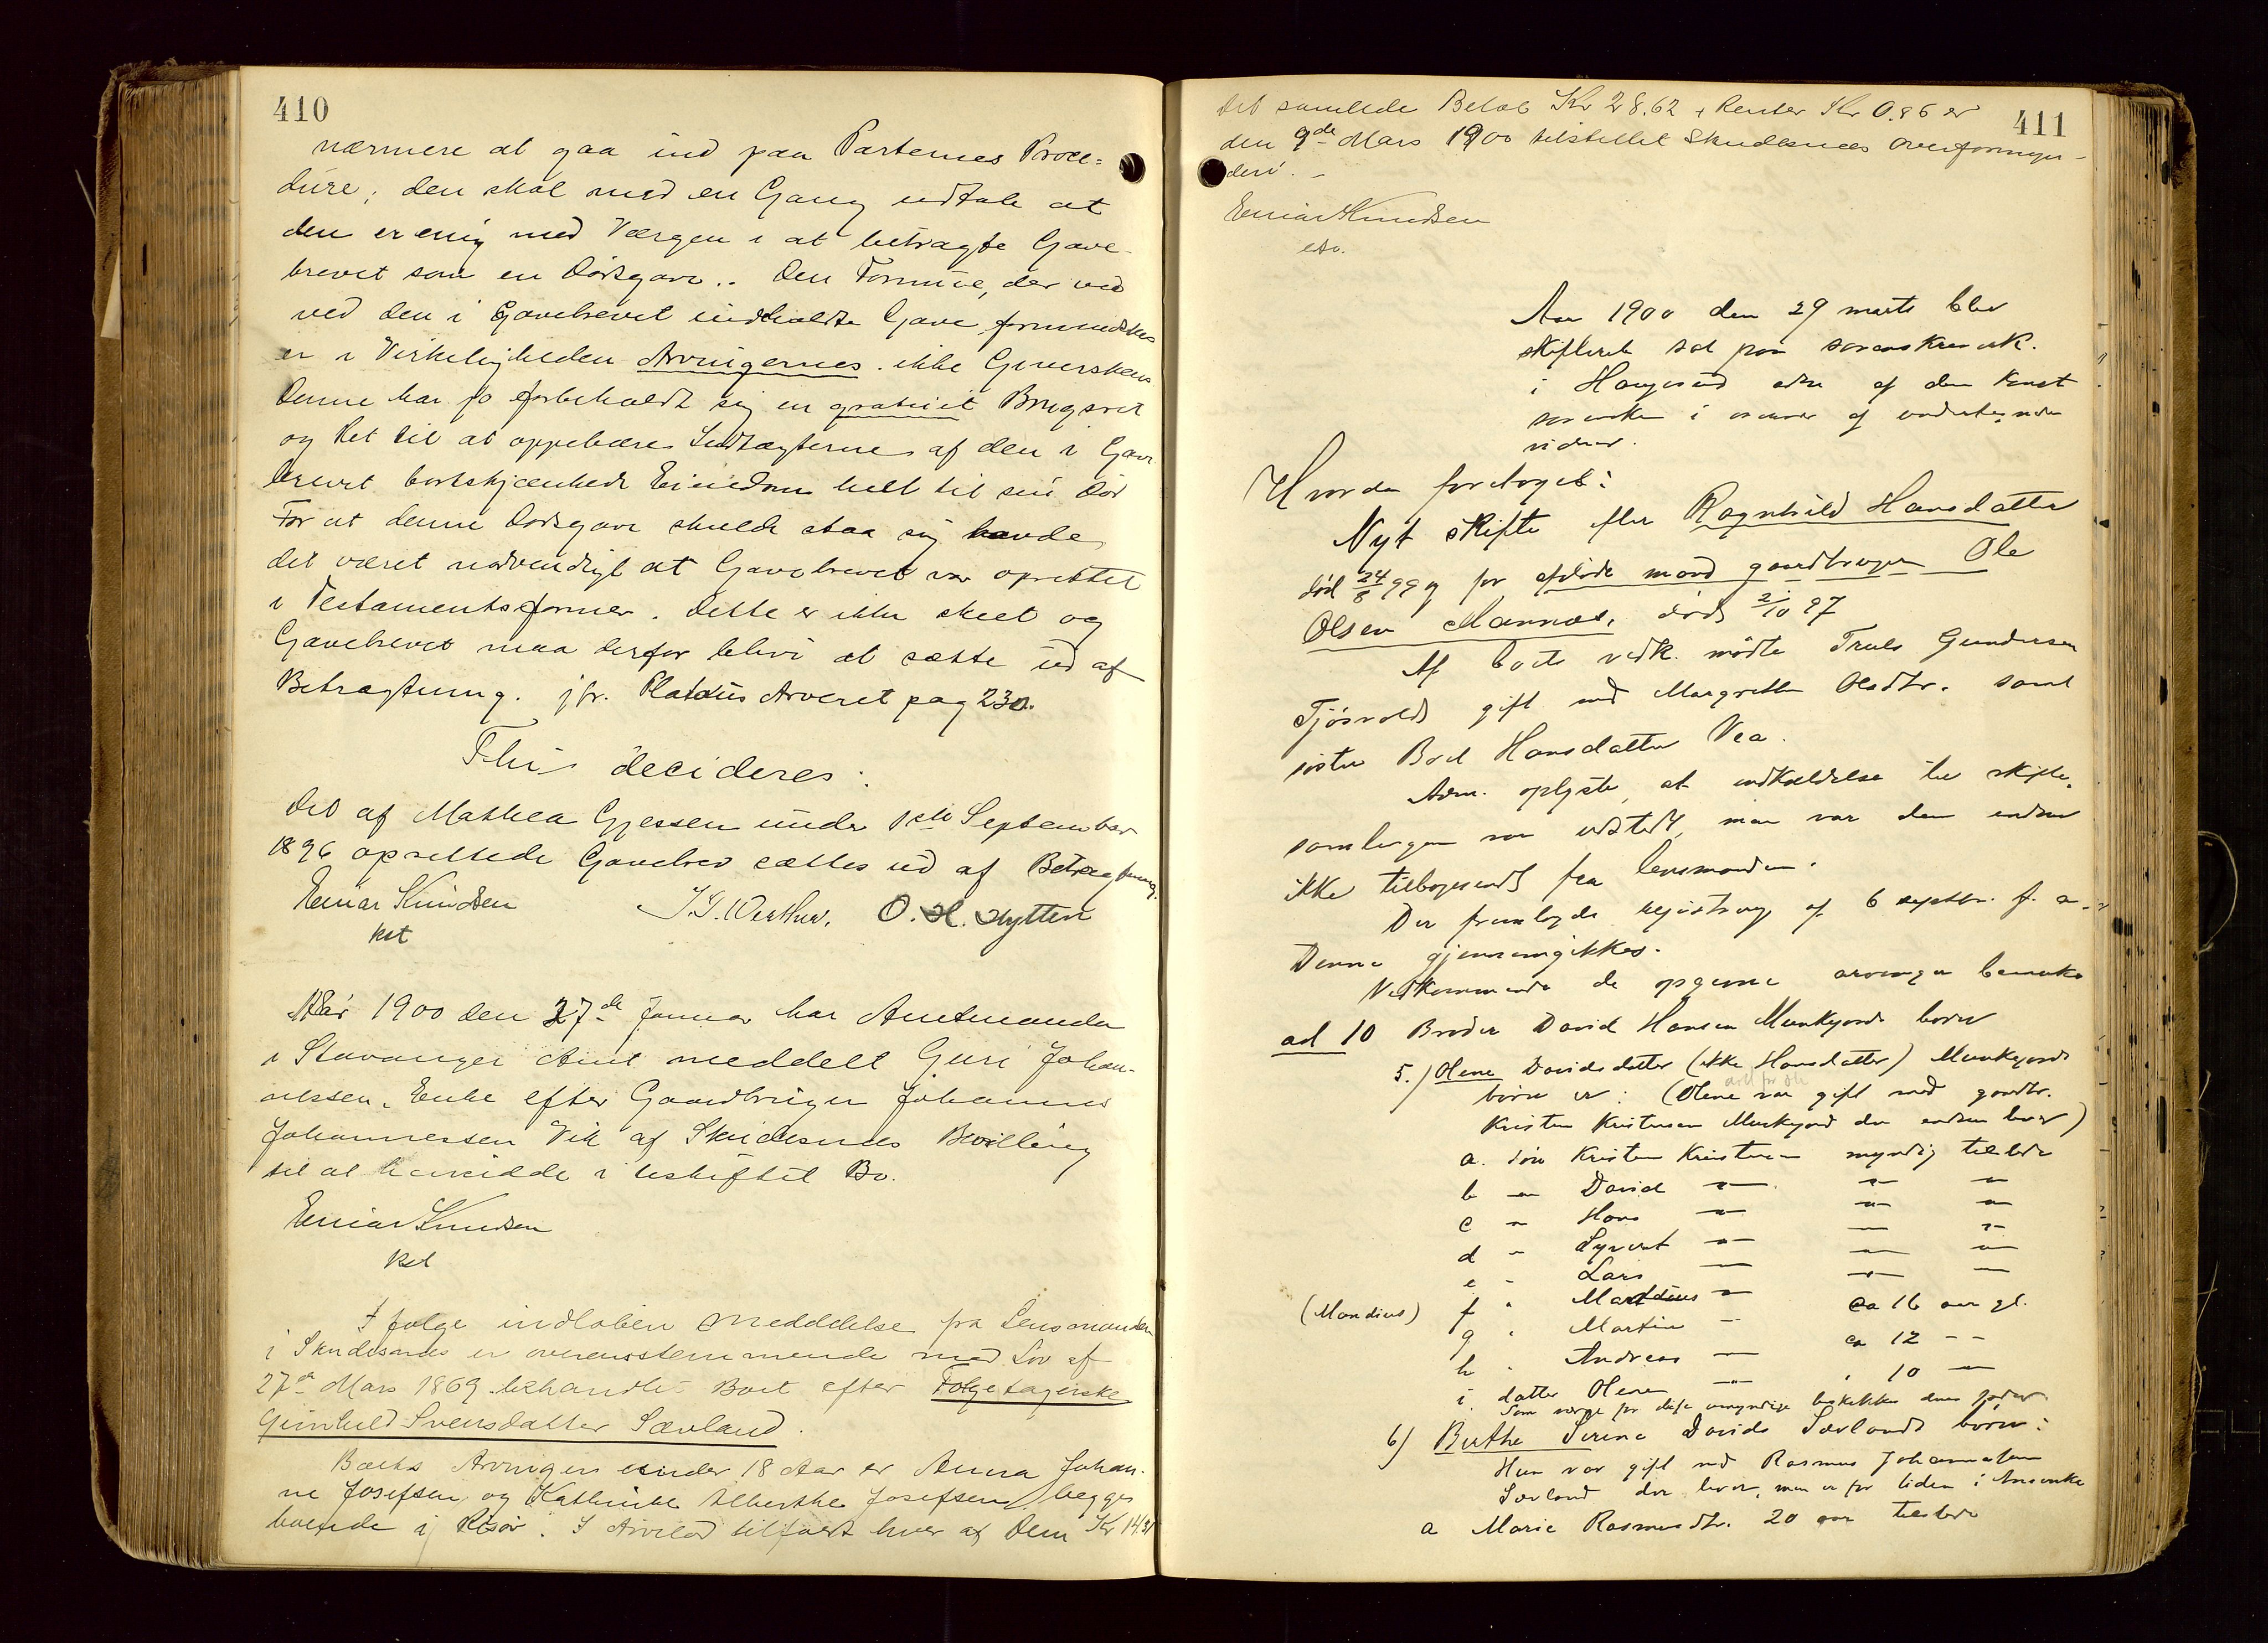 410
nærmere at gaa ind paa Parternes Proce=
dure; den skal med en Gang udtale at
den er enig med Værgen i at betragte Gave-
brevet som en Dødsgave.. Den Formue, der ved
ved den i Gavebrevet indeholdte Gave formindskes
er i Virkeligheden Arvingernes ikke Giverskens
Denne har jo forbeholdt sig en gratuit Brugsret
og Ret til at oppebære Indtægterne af den i Gave
brevet bortskjænkede Eiendom helt til sin Död
For at denne Dødsgave skulde staa sig havde
det været nødvendigt at Gavebrevet var oprettet
i Testamentsformer. Dette er ikke skeet og
Gavebrevet maa derfor blive at sætte ud af
Betragtning. jfr. Platous Arveret pag 230.
Thi decideres:
Det af Mathea Gjessen under 1ste September
1896 oprettede Gavebrev sættes ud af Betragtning.
Einar Knudsen
kst
O. H. Hytten
Aar 1900 den 27de Januar har Amtmanden
i Stavanger Amt meddelt Guri Johan-
nessen, Enke efter Gaardbruger Johannes
Johannessen Vik af Skudesnes Bevilling
til at hensidde i uskiftet Bo.
Einar Knudsen
kst
I følge indløben Meddelelse fra Lensmanden
i Skudesnes er overensstemmende med Lov af
27de Mars 1869 behandlet Boet efter Folgetagerske
Gunhild Svensdatter Sævland.
Boets Arvinger under 18 Aar er Anna Johan-
ne Josefsen og Kathrine Alberthe Josefsen begge
boende i Risør. I Arvelod tilfaldt hver af Dem Kr 14.31
411
Det samlede Beløb Kr 28.62 + Renter Kr 0.86 er
den 9de Mars 1900 tilstillet Skudesnes Overformyn-
deri. -
Einar Knudsen
cst.
Aar 1900 den 29 marts blev
skifteret sat paa sorenskriverk.
i Haugesund adm af den konst
sorenskr i overvær af undertegnede
vidner.
Hvorda foretoges:
Nyt skifte efter Ragnhild Hansdatter
död 24/8 99 og før afdøde mand gaardbruger Ole
Olsen Mannæs, død 2/10 97
Af boets vedk. mødte Truls Gundersen
Tjösvold gift med Margrethe Olsdtr. samt
söster Boel Hansdatter Vea.
Adm. oplyste, at indkaldelse til skifte-
samlingen var udstedt, men var den endnu
ikke tilbagesendt fra lensmanden.
Der fremlagdes registrering af 6 septbr. f. a.
Denne gjennemgikkes.
Vedkommende de opgivne arvinger bemærkes
ad 10 Broder David Hansen Munkejords børn
5.) Olene Davidsdatter (ikke Hansdatter) Munkejords
børn er: (Olene var gift med gaardbr.
Kristen Kristensen Munkejord der endnu lever)
a. sön Kristen Kristensen myndig tilstede
b — David — — —
c — Hans — — —
d - Syvert — — —
e - Lars — — —
(Mandius) f " Martdius — ca 16 aar gl.
g " Martin - ca 12 - -
h " Andreas — " 10 —
i. datter Olene —
Som værge for disse umyndige beskikkes deres fader
6) Berthe Serine Davids Sævlands børn:
Hun var gift med Rasmus Johannesen
Sævland der lever, men er for tiden i Amerika
a Marie Rasmusdtr. 20 aar tilstede